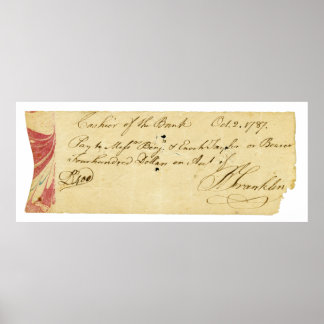 Cashier of the Bank Oct. 2. 1787.
Pay to Messrs Benj. & Enoch Taylor or Bearer
Four hundred Dollars on Acct. of
B Franklin
400